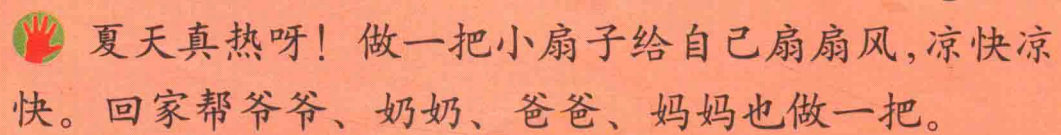 夏天真热呀！做一把小扇子给自己扇扇风，凉快凉
快。回家帮爷爷、奶奶、爸爸、妈妈也做一把。